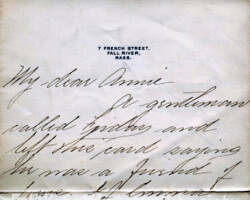 7 FRENCH STREET,
FALL RIVER,
MASS.
My dear Annie
A gentleman
called Friday and
left this card saying
he was a friend of
Emma